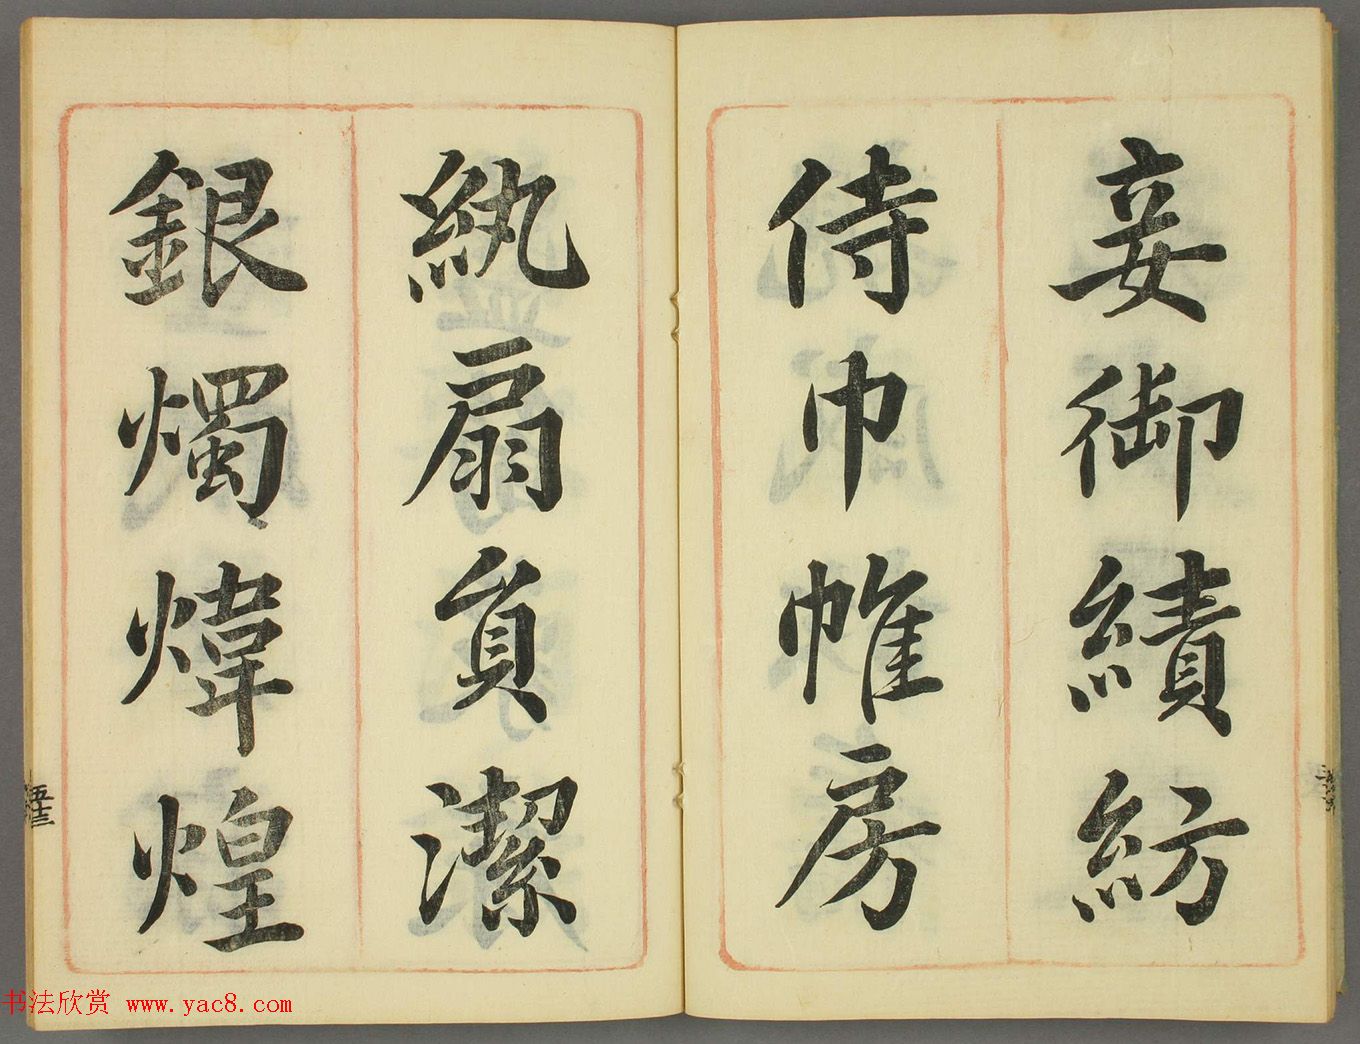 妾御績紡
侍巾帷房
紈扇貟潔
銀燭煒煌
五十三
书法欣赏 www.yac8.com